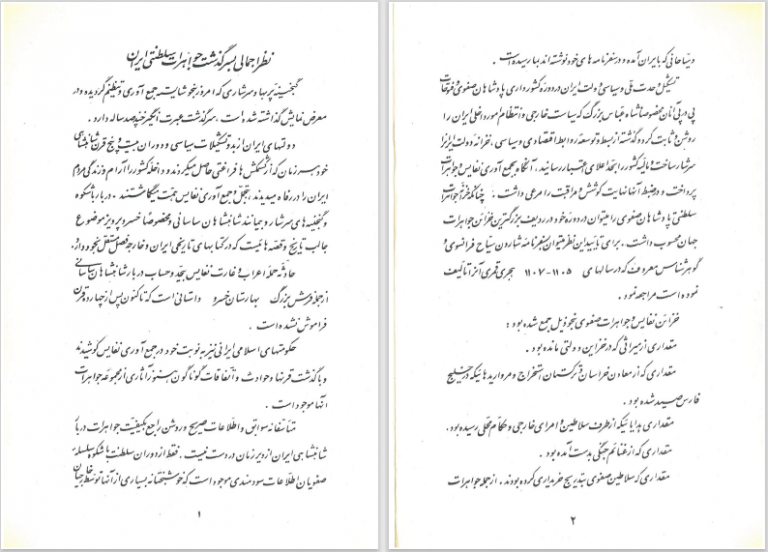 نظر اجمالی بسرگذشت جواهرات سلطنتی ایران
گنجینهٔ پر بها و سرشاری که امروز بخوشایند جمع آوری و تنظیم گردیده و در
معرض نمایش گذاشته شده است . سرگذشت عبرت انگیز چند صد ساله دارد .
دولتهای ایران از بدو تشکیلات سیاسی و دوران بیست و پنج قرن شاهنشاهی
خود هر زمان که از کشمکش ها فراغتی حاصل میکردند و داخله کشور را آرام و زندگی مردم
ایران را در رفاه میدیدند بتجمل و جمع آوری نفایس همت میگماشتند . دربار باشکوه
و گنجینه های سرشار و بیمانند شاهنشاهان ساسانی و مخصوصاً خسرو پرویز موضوع
جالب تاریخ و قصه هائیست که در کتابهای تاریخی ایران و خارجه فصل مستقل بخود دارد .
حادثه حمله اعراب و غارت نفایس بیحد و حساب دربار شاهنشاهان ساسانی
از جمله فرش بزرگ بهارستان خسرو داستانی است که تاکنون پس از چهارده قرن
فراموش نشده است .
حکومتهای اسلامی ایرانی نیز بنوبت خود در جمع آوری نفایس کوشیدند
و با گذشت قرنها و حوادث و اتفاقات گوناگون هنوز آثاری از مجموعه جواهرات
آنها موجود است .
متأسفانه سوابق و اطلاعات صریح و روشن راجع بکیفیت جواهرات دربار
شاهنشاهی ایران از دیر زمان در دست نیست . فقط از دوران سلطنت باشکوه سلسله
صفویان اطلاعات سودمندی موجود است که خوشبختانه بسیاری از آنها توسط خارجیان
۱
و سیاحانی که بایران آمده و در سفرنامه های خود نوشته اند بما رسیده است .
تشکیل و وحدت ملی و سیاسی دولت ایران در دوره کشورداری پادشاهان صفوی و فتوحات
پی در پی آنان مخصوصاً شاه عباس بزرگ که سیاست خارجی و انتظام امور داخلی ایران را
روشن و ثابت کرد و گذشته از بسط و توسعه روابط اقتصادی و سیاسی . خزانه دولت ایران را نیز
سرشار ساخت و مالیه کشور را بحد اعلای اعتبار رسانید . آنگاه بجمع آوری نفایس و جواهرات
پرداخت و در حفظ آنها نهایت کوشش و مراقبت را مرعی داشت . چنانکه خزانه جواهرات
سلطنتی پادشاهان صفوی را میتوان در دوره خود در ردیف بزرگترین خزائن جواهرات
جهان محسوب داشت . برای تأیید این نظر میتوان بسفرنامه شاردن سیاح فرانسوی و
گوهرشناس معروف که در سالهای ۱۱۰۵-۱۱۰۷ هجری قمری آنرا تألیف
نموده است مراجعه نمود .
خزائن نفایس و جواهرات صفوی بنحو ذیل جمع شده بود :
مقداری از میراثی که در خزاین دولتی مانده بود .
مقداری که از معادن خراسان و ترکستان استخراج و مرواریدهائیکه در خلیج
فارس صید شده بود .
مقداری هدایائیکه از طرف سلاطین و امرای خارجی و حکام محلی رسیده بود .
مقداری که از غنائم جنگی بدست آمده بود .
مقداری که سلاطین صفوی بتدریج خریداری کرده بودند . از جمله جواهرات
۲